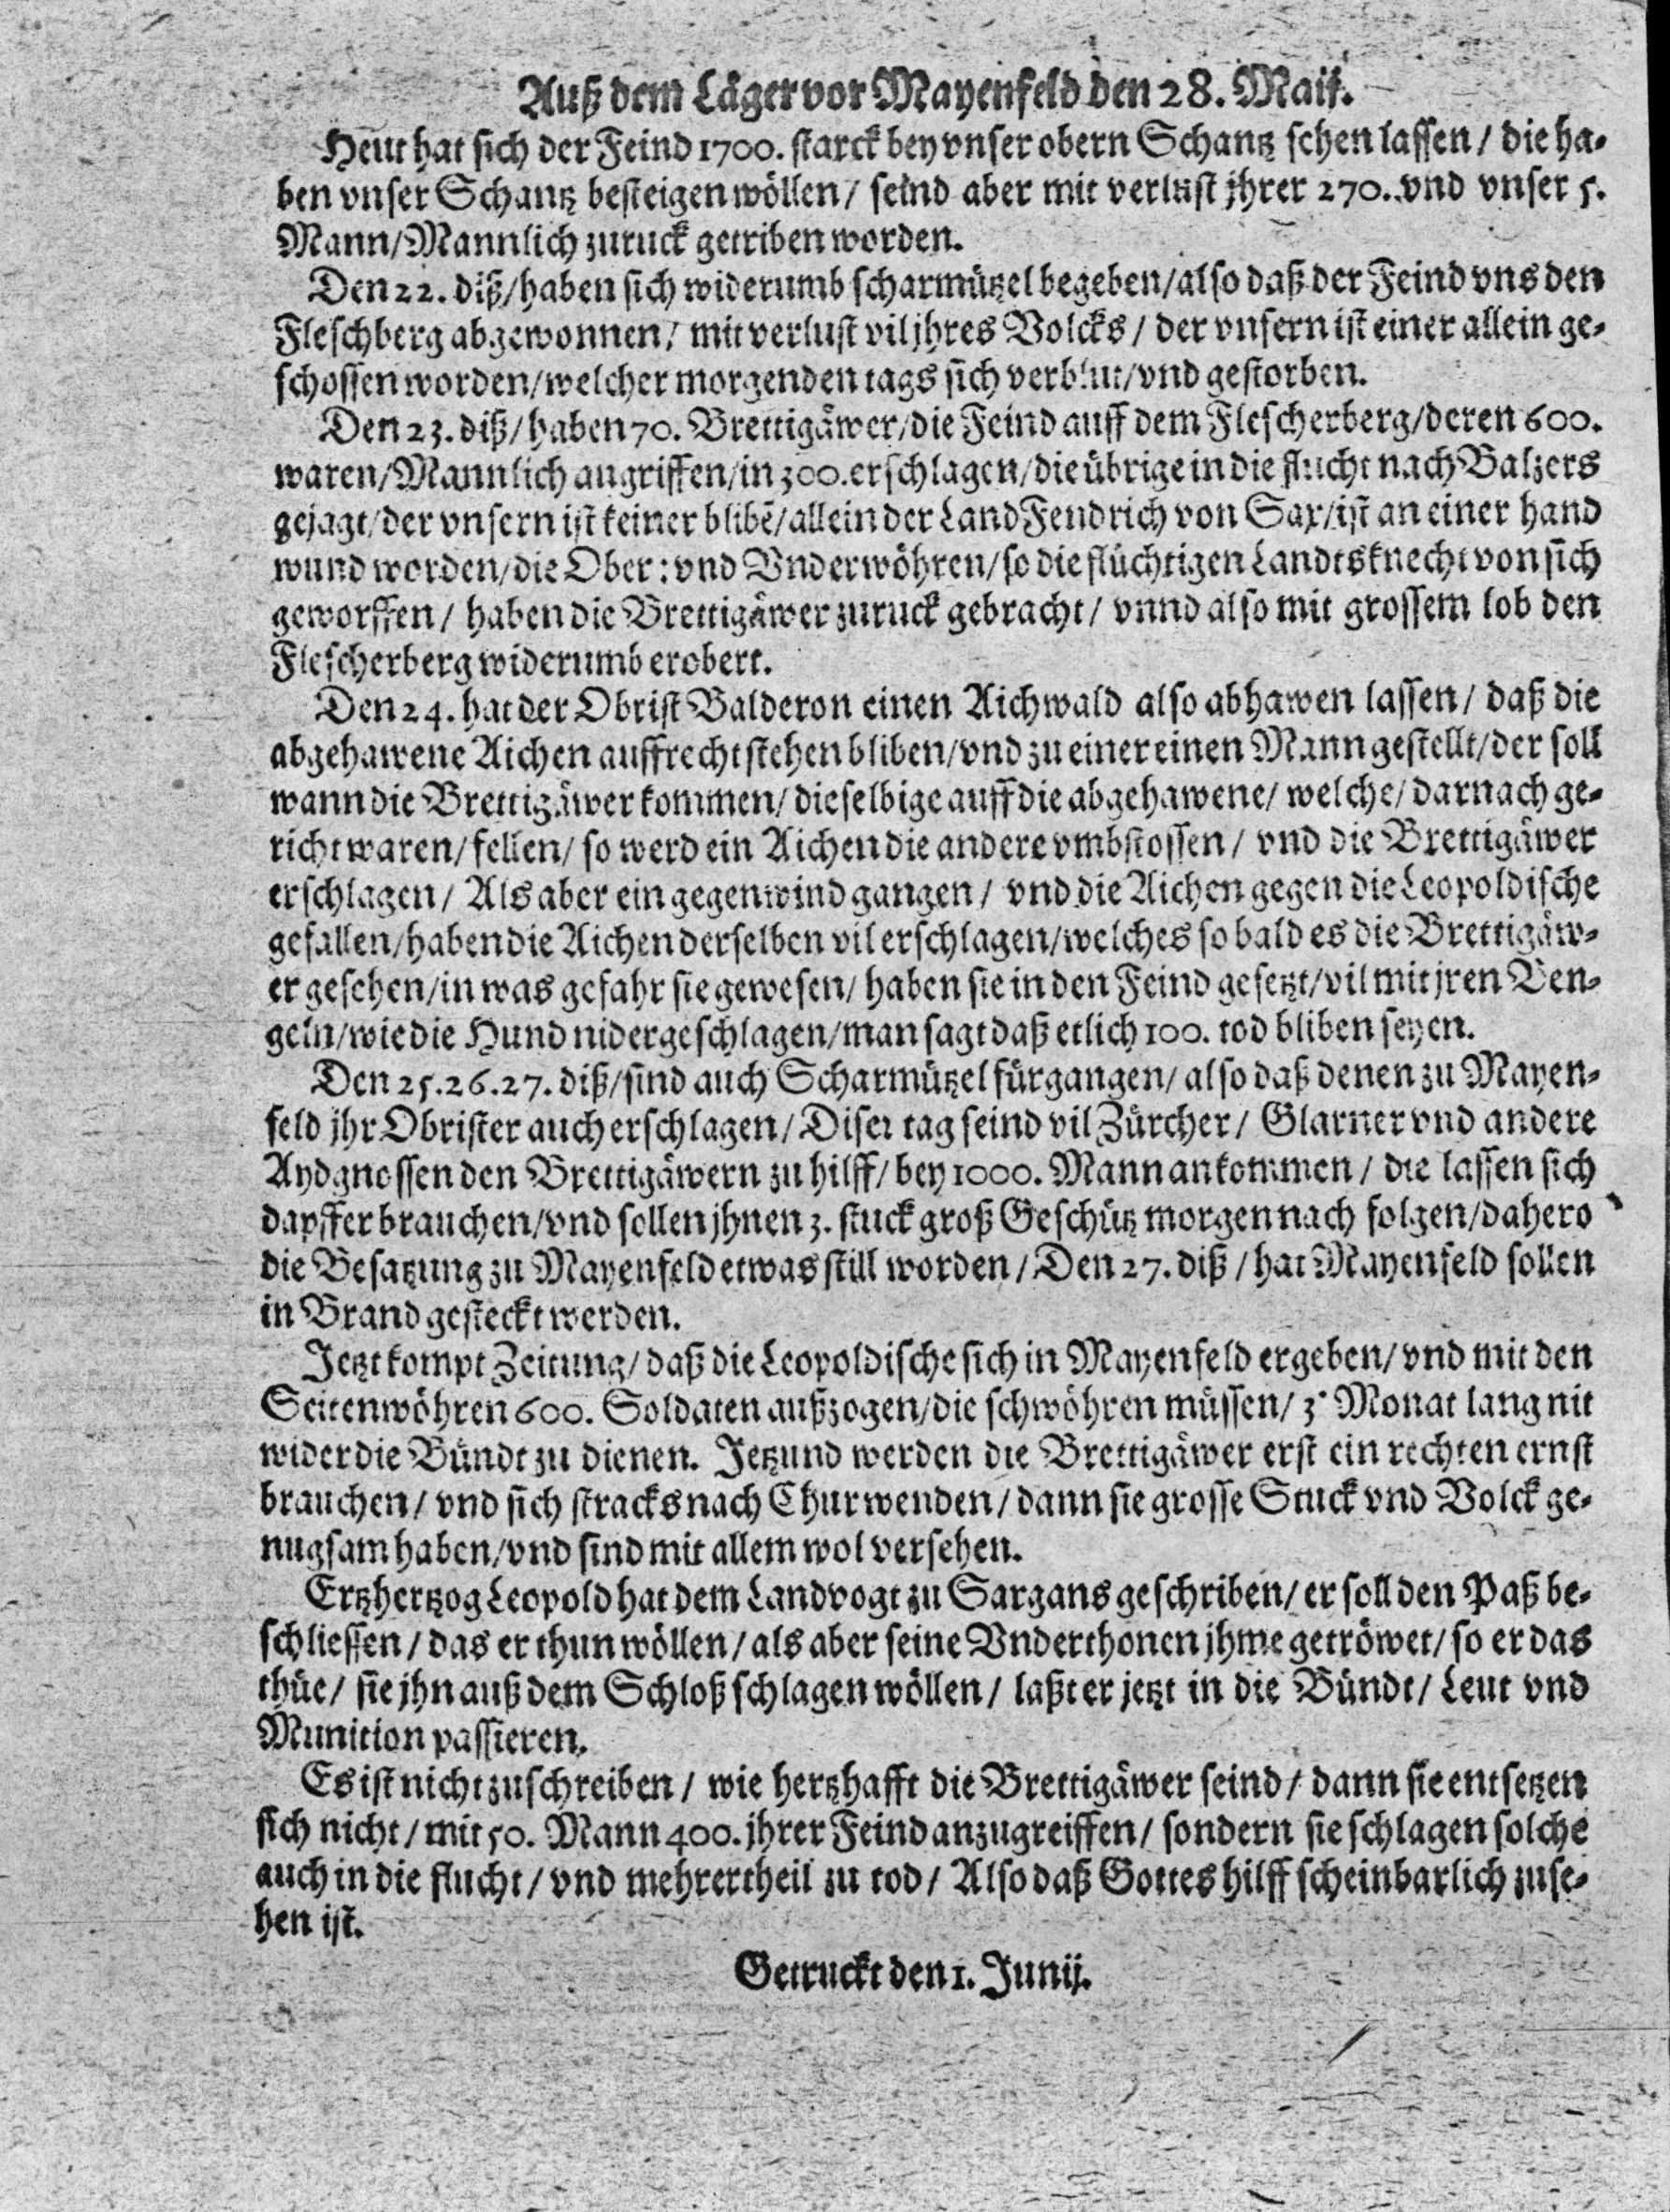 Auß dem Läger vor Mayenfeld den 28. Maij.
Heut hat sich der Feind 1700. starck bey vnser obern Schantz sehen lassen / die ha-
ben vnser Schantz besteigen wöllen / seind aber mit verlust jhrer 270. vnd vnser 5.
Mann/Mannlich zuruck getriben worden.
Den 22. diß/haben sich widerumb scharmützel begeben/also daß der Feind vns den
Fleschberg abgewonnen / mit verlust vil jhres Volcks / der vnsern ist einer allein ge-
schossen worden/welcher morgenden tags sich verblut/vnd gestorben.
Den 23. diß/haben 70. Brettigäwer/die Feind auff dem Flescherberg/deren 600.
waren/Mannlich angriffen/in 300. erschlagen/die übrige in die flucht nach Balzers
gejagt/der vnsern ist keiner blibē/allein der LandFendrich von Sax/ist an einer hand
wund worden/die Ober: vnd Vnderwöhren/so die flüchtigen Landtsknecht von sich
geworffen / haben die Brettigäwer zuruck gebracht / vnnd also mit grossem lob den
Flescherberg widerumb erobert.
Den 24. hat der Obrist Balderon einen Aichwald also abhawen lassen / daß die
abgehawene Aichen auffrecht stehen bliben/vnd zu einer einen Mann gestellt/der soll
wann die Brettigäwer kommen/ dieselbige auff die abgehawene/ welche/ darnach ge-
richt waren/fellen/ so werd ein Aichen die andere vmbstossen / vnd die Brettigäwer
erschlagen / Als aber ein gegenwind gangen / vnd die Aichen gegen die Leopoldische
gefallen/haben die Aichen derselben vil erschlagen/welches so bald es die Brettigäw-
er gesehen/in was gefahr sie gewesen/ haben sie in den Feind gesetzt/vil mit jren Ben-
geln/wie die Hund nidergeschlagen/man sagt daß etlich 100. tod bliben seyen.
Den 25. 26. 27. diß/sind auch Scharmützel fürgangen/ also daß denen zu Mayen-
feld jhr Obrister auch erschlagen/ Diser tag seind vil Zürcher / Glarner vnd andere
Aydgnossen den Brettigäwern zu hilff/ bey 1000. Mann ankommen / die lassen sich
dapffer brauchen/vnd sollen jhnen 3. stuck groß Geschütz morgen nach folgen/dahero
die Besatzung zu Mayenfeld etwas still worden / Den 27. diß / hat Mayenfeld sollen
in Brand gesteckt werden.
Jetzt kompt Zeitung/ daß die Leopoldische sich in Mayenfeld ergeben/ vnd mit den
Seitenwöhren 600. Soldaten außzogen/die schwöhren müssen/ 3. Monat lang nit
wider die Bündt zu dienen. Jetzund werden die Brettigäwer erst ein rechten ernst
brauchen / vnd sich stracks nach Chur wenden / dann sie grosse Stuck vnd Volck ge-
nugsam haben/vnd sind mit allem wol versehen.
Ertzhertzog Leopold hat dem Landvogt zu Sargans geschriben/ er soll den Paß be-
schliessen / das er thun wöllen / als aber seine Vnderthonen jhme getröwet/ so er das
thüe / sie jhn auß dem Schloß schlagen wöllen / laßt er jetzt in die Bündt / Leut vnd
Munition passieren.
Es ist nicht zuschreiben / wie hertzhafft die Brettigäwer seind / dann sie entsetzen
sich nicht / mit 50. Mann 400. jhrer Feind anzugreiffen / sondern sie schlagen solche
auch in die flucht / vnd mehrertheil zu tod / Also daß Gottes hilff scheinbarlich zuse-
hen ist.
Getruckt den 1. Junij.